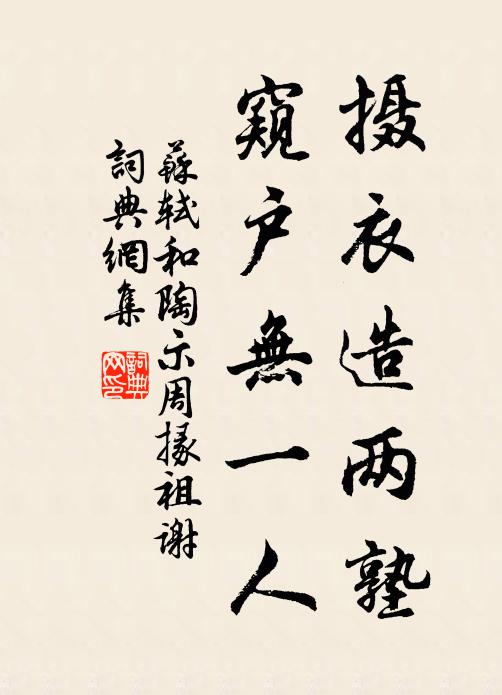 摄衣造两塾
窥户無一人
蘇轼和陶示周掾祖谢
詞典網集
詞典网印